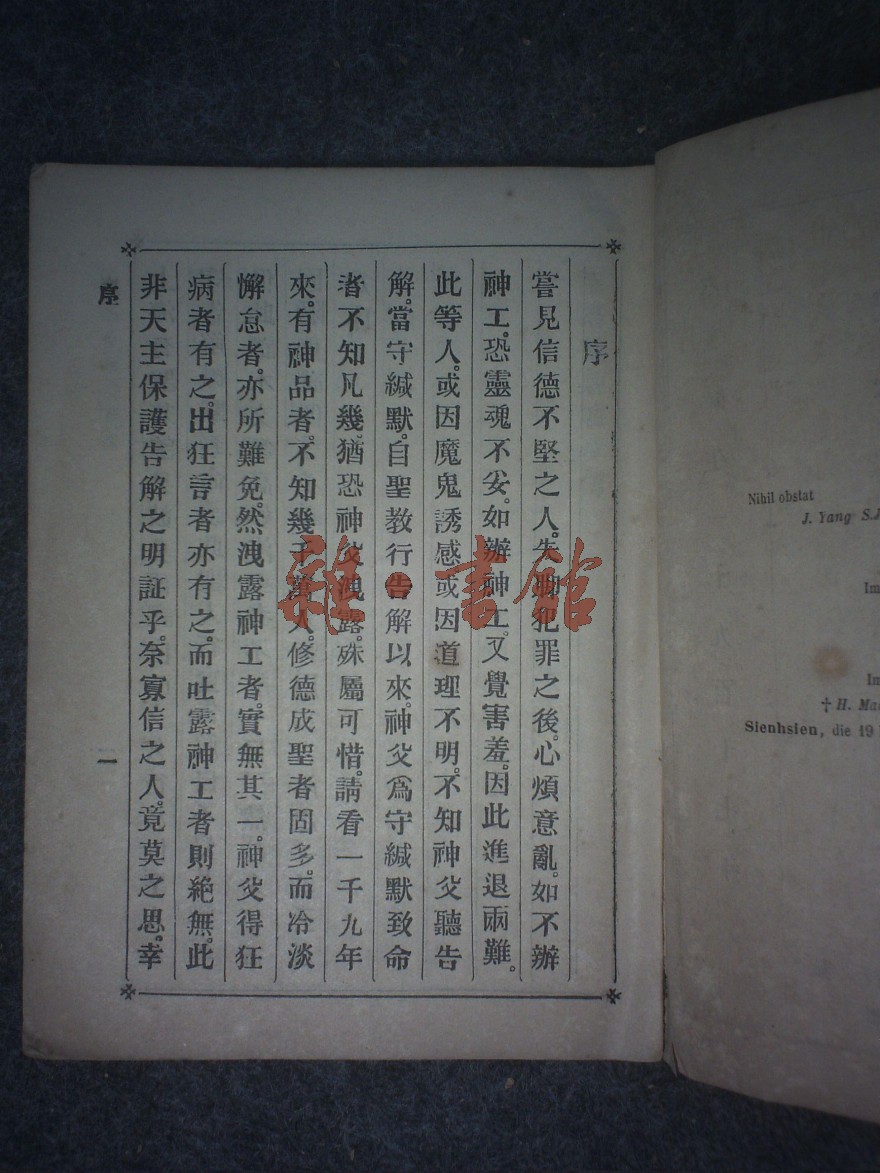 序
嘗見信德不堅之人。失脚犯罪之後。心煩意亂。如不辦
神工。恐靈魂不安。如辦神工。又覺害羞。因此進退兩難。
此等人。或因魔鬼誘感或因道理不明。不知神父聽告
解。當守緘默。自聖教行告解以來。神父爲守緘默致命
者不知凡幾。猶恐神父洩露。殊屬可惜。請看一千九年
來。有神品者。不知幾千萬人。修德成聖者固多。而冷淡
懈怠者。亦所難免。然洩露神工者。實無其一。神父得狂
病者有之。出狂言者亦有之。而吐露神工者則絕無。此
非天主保護告解之明証乎。奈寡信之人。竟莫之思。幸
序
一
雜·書館
Nihil obstat
J. Yang S.J
Im
Im
† H. Ma
Sienhsien, die 19